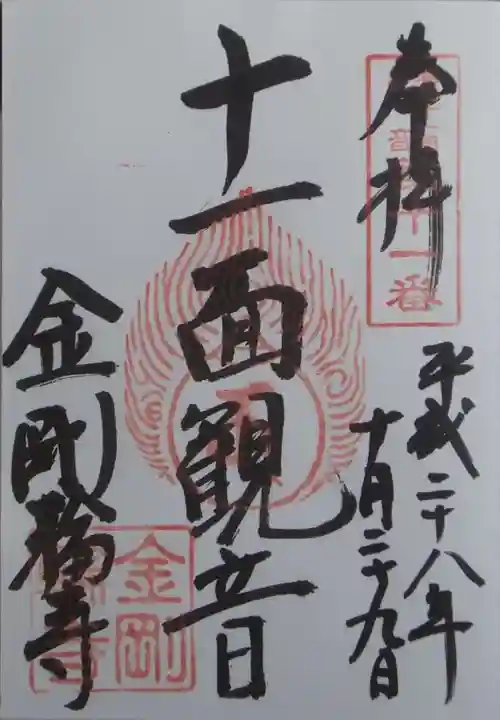 奉拝
平成二十八年
十月二十九日
十一面観音
金剛福寺
十一番
金剛